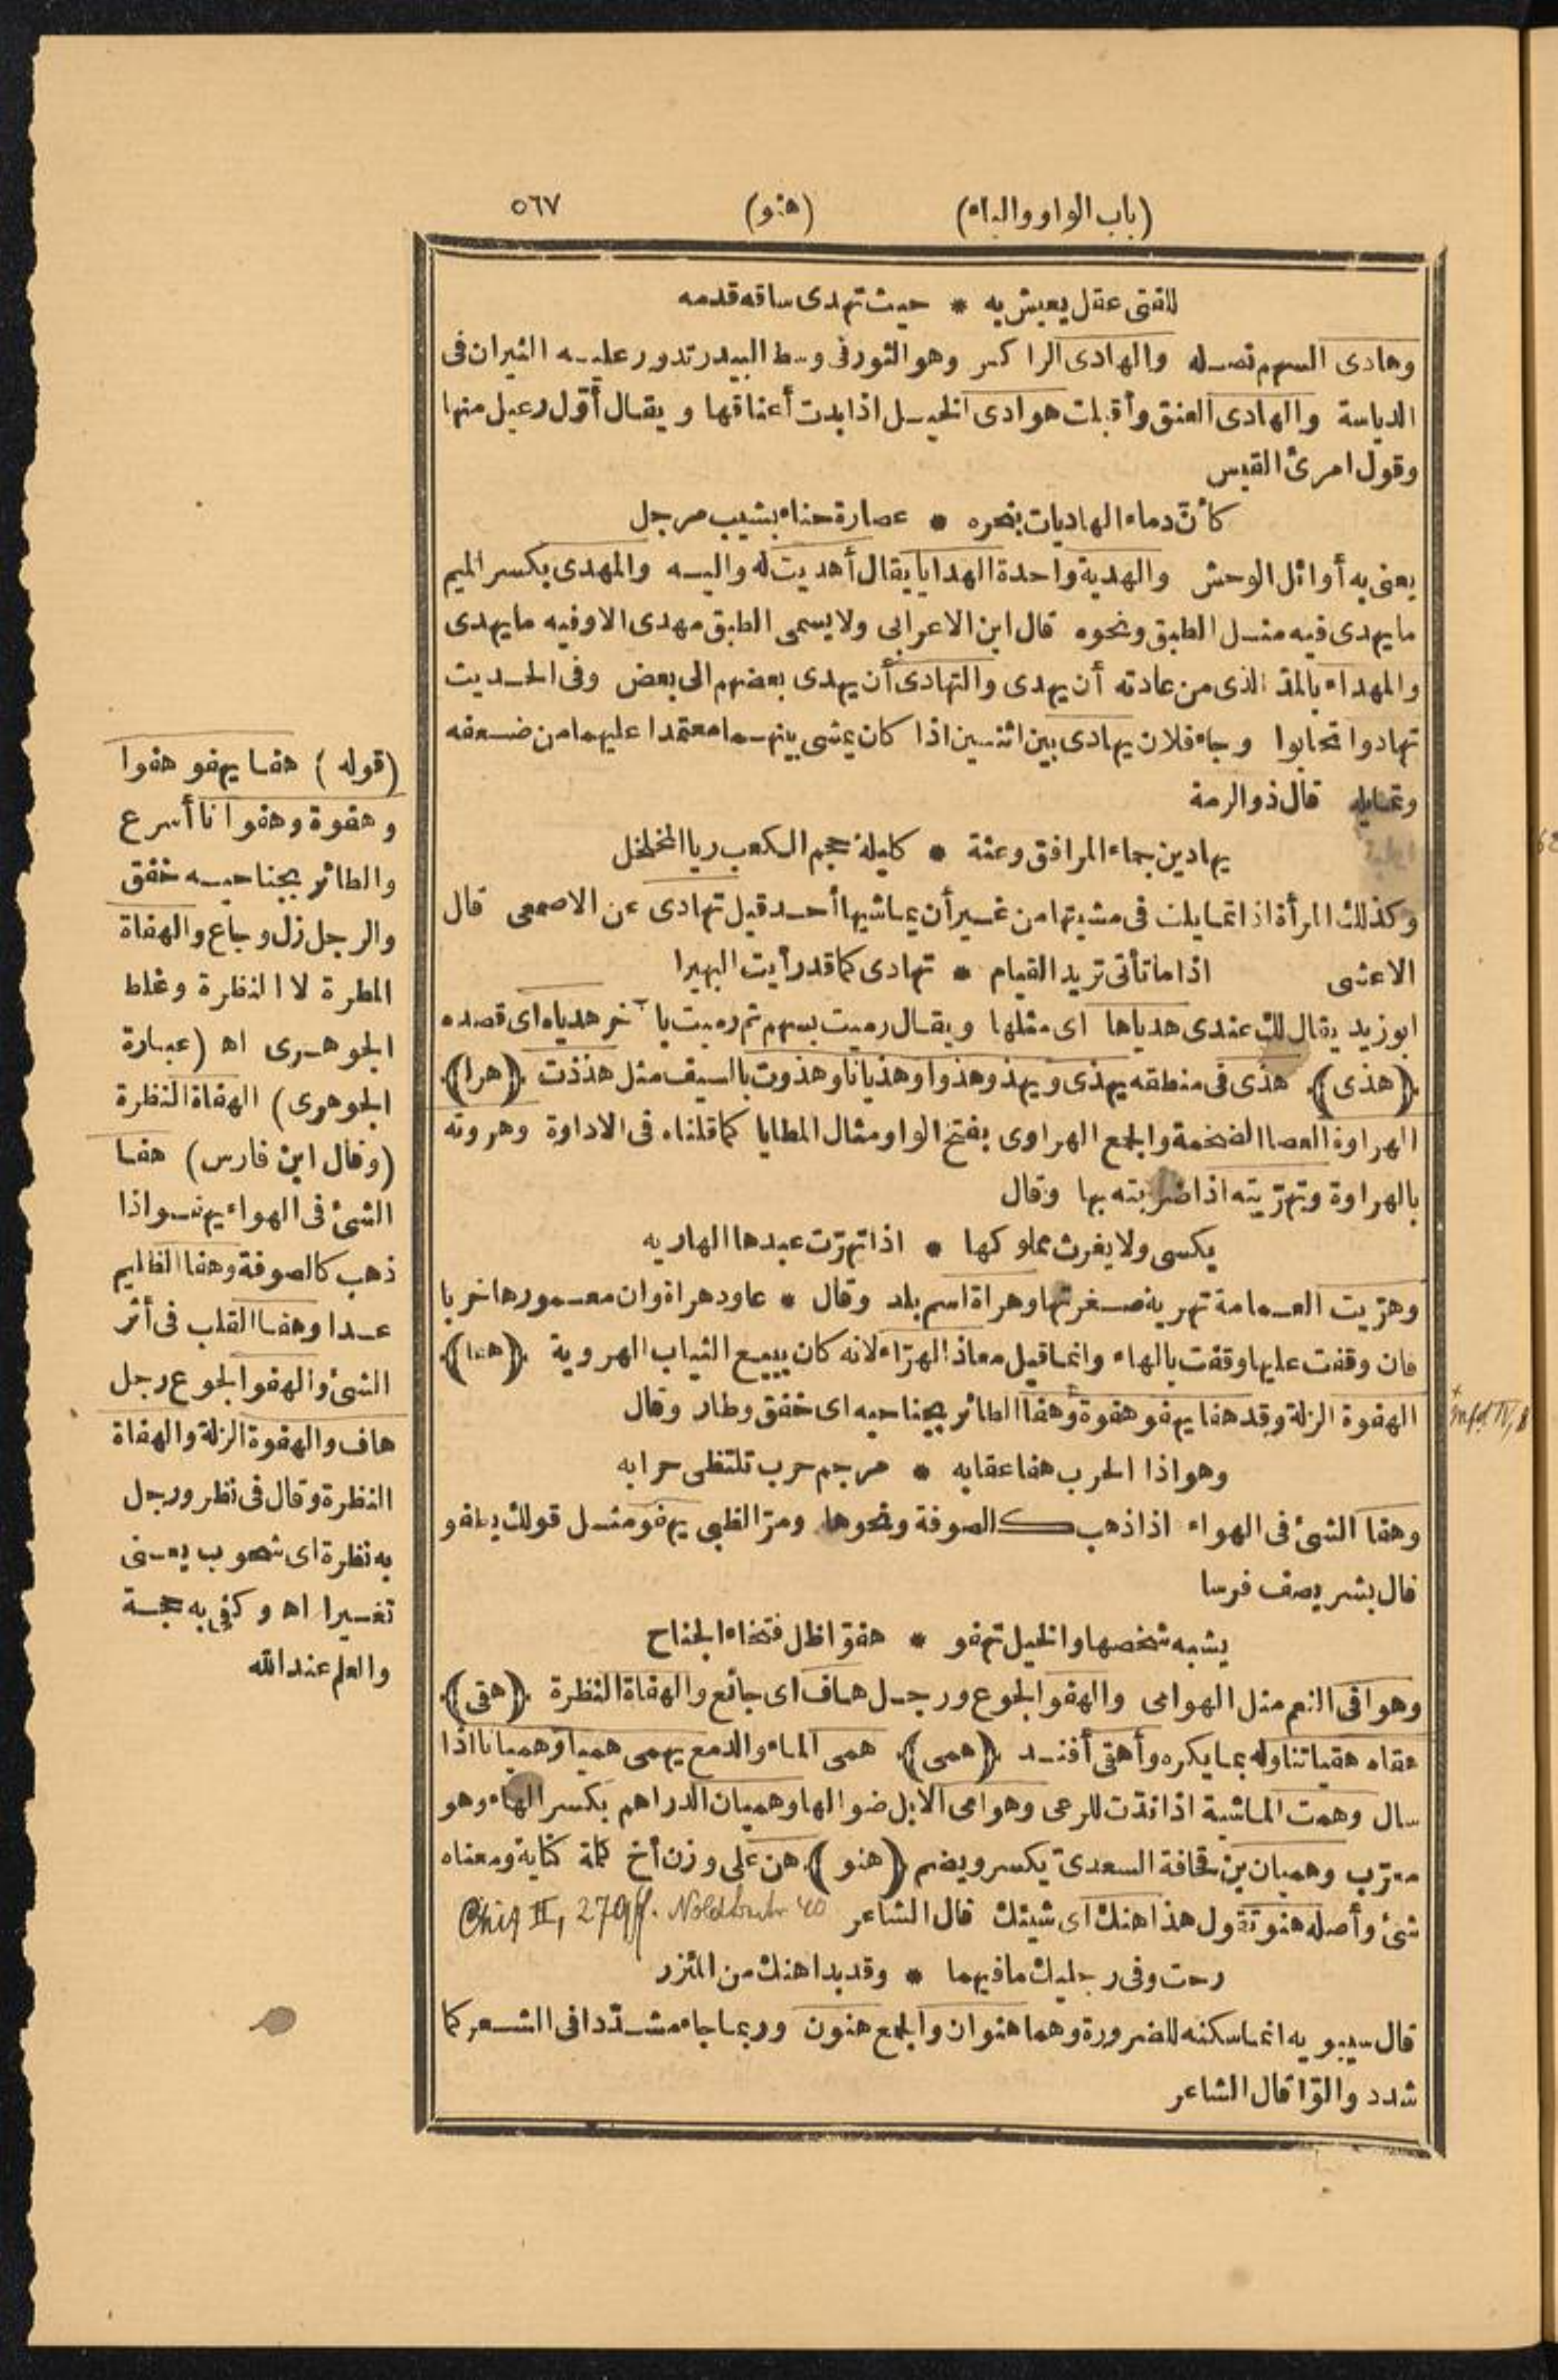 (باب الواو والياء) (هنو) ٥٦٧
للفتى عقل يعيش به * حيث تهدى ساقه قدمه
وهادى السهم نصله والهادى الراكس وهو الثور فى وسط البيدر تدور عليه الثيران فى
الدياسة والهادى العنق وأقبلت هوادى الخيل اذا بدت أعناقها ويقال أوّل رعيل منها
وقول امرئ القيس
كأنّ دماء الهاديات بنحره * عصارة حناء بشيب مرجل
يعنى به أوائل الوحش والهدية واحدة الهدايا يقال أهديت له واليه والمهدى بكسر الميم
ما يهدى فيه مثل الطبق ونحوه قال ابن الاعرابى ولا يسمى الطبق مهدى الا وفيه ما يهدى
والمهداء بالمدّ الذى من عادته أن يهدى والتهادى أن يهدى بعضهم الى بعض وفى الحديث
تهادوا تحابوا وجاء فلان يهادى بين اثنين اذا كان يمشى بينهما معتمدا عليهما من ضعفه
وتمايله قال ذو الرمة
يهادين جماء المرافق وعثة * كليلة حجم الكعب ريا المخلخل
وكذلك المرأة اذا تمايلت فى مشيتها من غير أن يماشيها أحد قيل تهادى عن الاصمعى قال
الاعشى اذا ما تأتى تريد القيام * تهادى كما قد رأيت البهيرا
ابو زيد يقال لك عندى هدياها اى مثلها ويقال رميت بسهم ثم رميت بآخر هدياه اى قصده
(هذى) هذى فى منطقه يهذى ويهذو هذوا وهذيانا وهذوت بالسيف مثل هذذت (هرا)
الهراوة العصا الضخمة والجمع الهراوى بفتح الواو مثال المطايا كما قلناه فى الاداوة وهروته
بالهراوة وتهرّيته اذا ضربته بها وقال
يكسى ولا يغرث مملوكها * اذا تهرّت عبدها الهاريه
وهرّيت العمامة تهرية صغرتها وهراة اسم بلد وقال * عاود هراة وان معمورها خربا
فان وقفت عليها وقفت بالهاء وانما قيل معاذ الهرّاء لانه كان يبيع الثياب الهروية (هفا)
الهفوة الزلة وقد هفا يهفو هفوة وهفا الطائر بجناحيه اى خفق وطار وقال
وهو اذا الحرب هفا عقابه * مرجم حرب تلتظى حرابه
وهفا الشئ فى الهواء اذا ذهب كالصوفة ونحوها ومرّ الظبى يهفو مثل قولك يطفو
قال بشر يصف فرسا
يشبه شخصها والخيل تهفو * هفوّا ظل فتخاء الجناح
وهوافى النعم مثل الهوامى والهفو الجوع ورجل هاف اى جائع والهفاة النظرة (هقى)
هقاه هقيا تناوله بما يكره وأهقى أفند (همى) همى الماء والدمع يهمى هميا وهميانا اذا
سال وهمت الماشية اذا ندّت للرعى وهوامى الابل ضوالها وهميان الدراهم بكسر الهاء وهو
معرّب وهميان بن قحافة السعدىّ يكسر ويضم (هنو) هن على وزن أخ كلمة كناية ومعناه
شئ وأصله هنو تقول هذا هنك اى شيئك قال الشاعر Chiz II, 279ff.
رحت وفى رجليك ما فيهما * وقد بدا هنك من المئزر
قال سيبويه انما سكنه للضرورة وهما هنوان والجمع هنون وربما جاء مشدّدا فى الشعر كما
شدد والوّا قال الشاعر
(قوله) هفا يهفو هفوا
وهفوة وهفوانا أسرع
والطائر بجناحيه خفق
والرجل زل وجاع والهفاة
المطرة لا النظرة وغلط
الجوهرى اه (عبارة
الجوهرى) الهفاة النظرة
(وقال ابن فارس) هفا
الشئ فى الهواء يهفو اذا
ذهب كالصوفة وهفا الظليم
عدا وهفا القلب فى أثر
الشئ والهفو الجوع رجل
هاف والهفوة الزلة والهفاة
النظرة وقال فى نظر ورجل
به نظرة اى شحوب يعنى
تغسيرا اه وكفى به حجة
والعلم عند الله